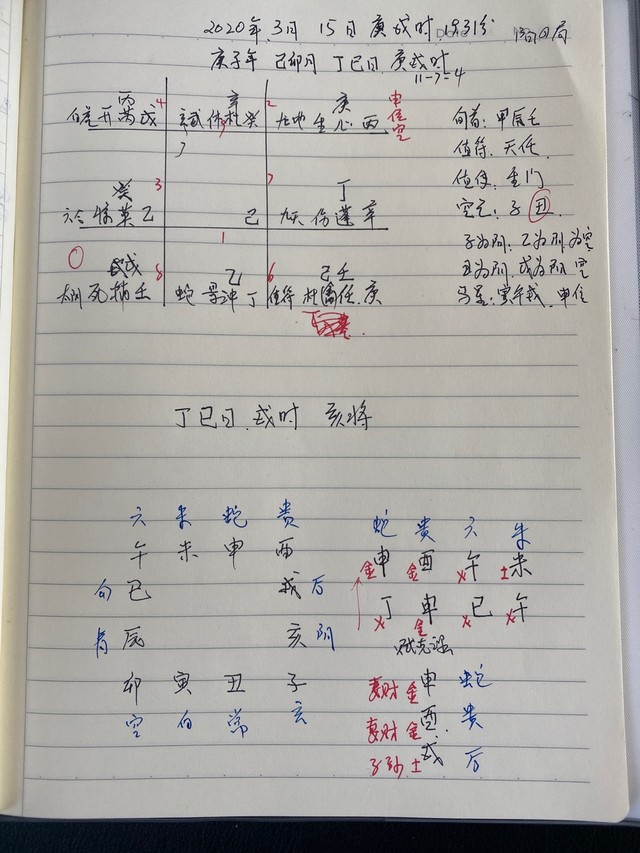 2020年.3月 15日 庚戌时.19:31分
庚子年 己卯月 丁巳日.庚戌时
11-7-4
丙 4 辛 2 庚 申位空
白虎开 戊 玄武休 癸 九地生心丙
7
旬首:甲辰壬
值符.天任.
值使:生门
空亡:子丑.
子为阴:乙为阴为空
丑为阴.戌为阴空
马星:寅午戌.申位
癸 3 7 丁
六合惊英乙 己 九天伤蓬辛
1
戊 8 乙 6 己壬
太阴死辅壬 蛇景冲丁 值符杜禽任.庚
丁巳日.戌时 亥将
六 朱 蛇 贵
午 未 申 酉
勾 巳 戌 后
青 辰 亥 阴
卯 寅 丑 子
空 白 常 玄
蛇 贵 六 朱
金申 金酉 火午 土未
火丁 金申 火巳 火午
妻财 金申 蛇
妻财 金酉 贵
子孙 土戌 后